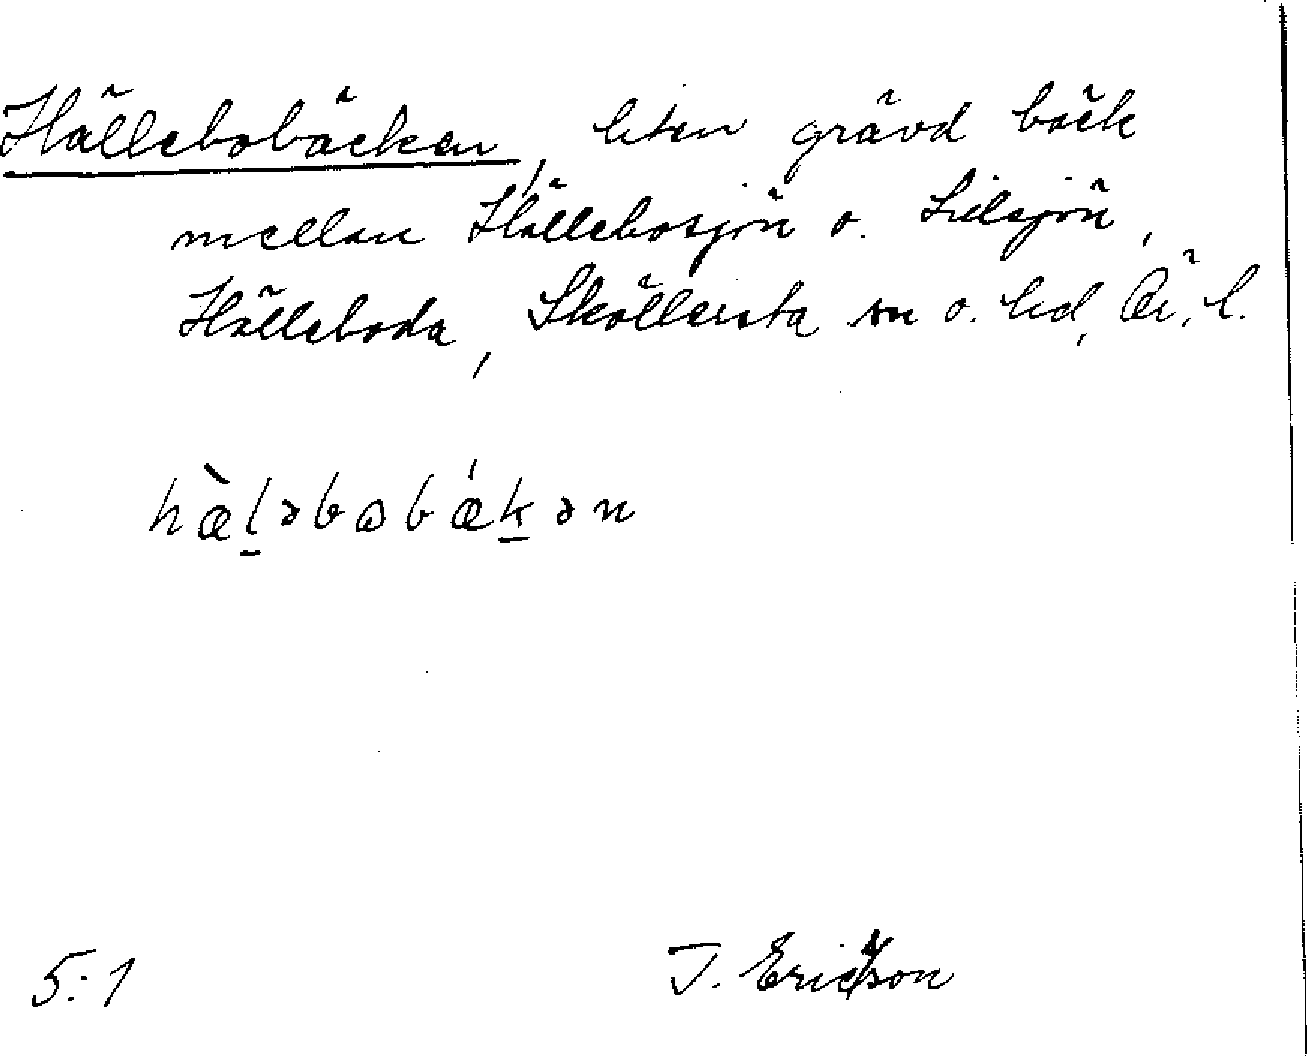 Hällebobäcken, liten grävd bäck
mellan Hällebosjön o. Lidsjön,
Hälleboda, Sköllersta sn o. hd, Ör. l.
hæ̀l̠əbωbǽk̠ən
5:1 J. Ericsson